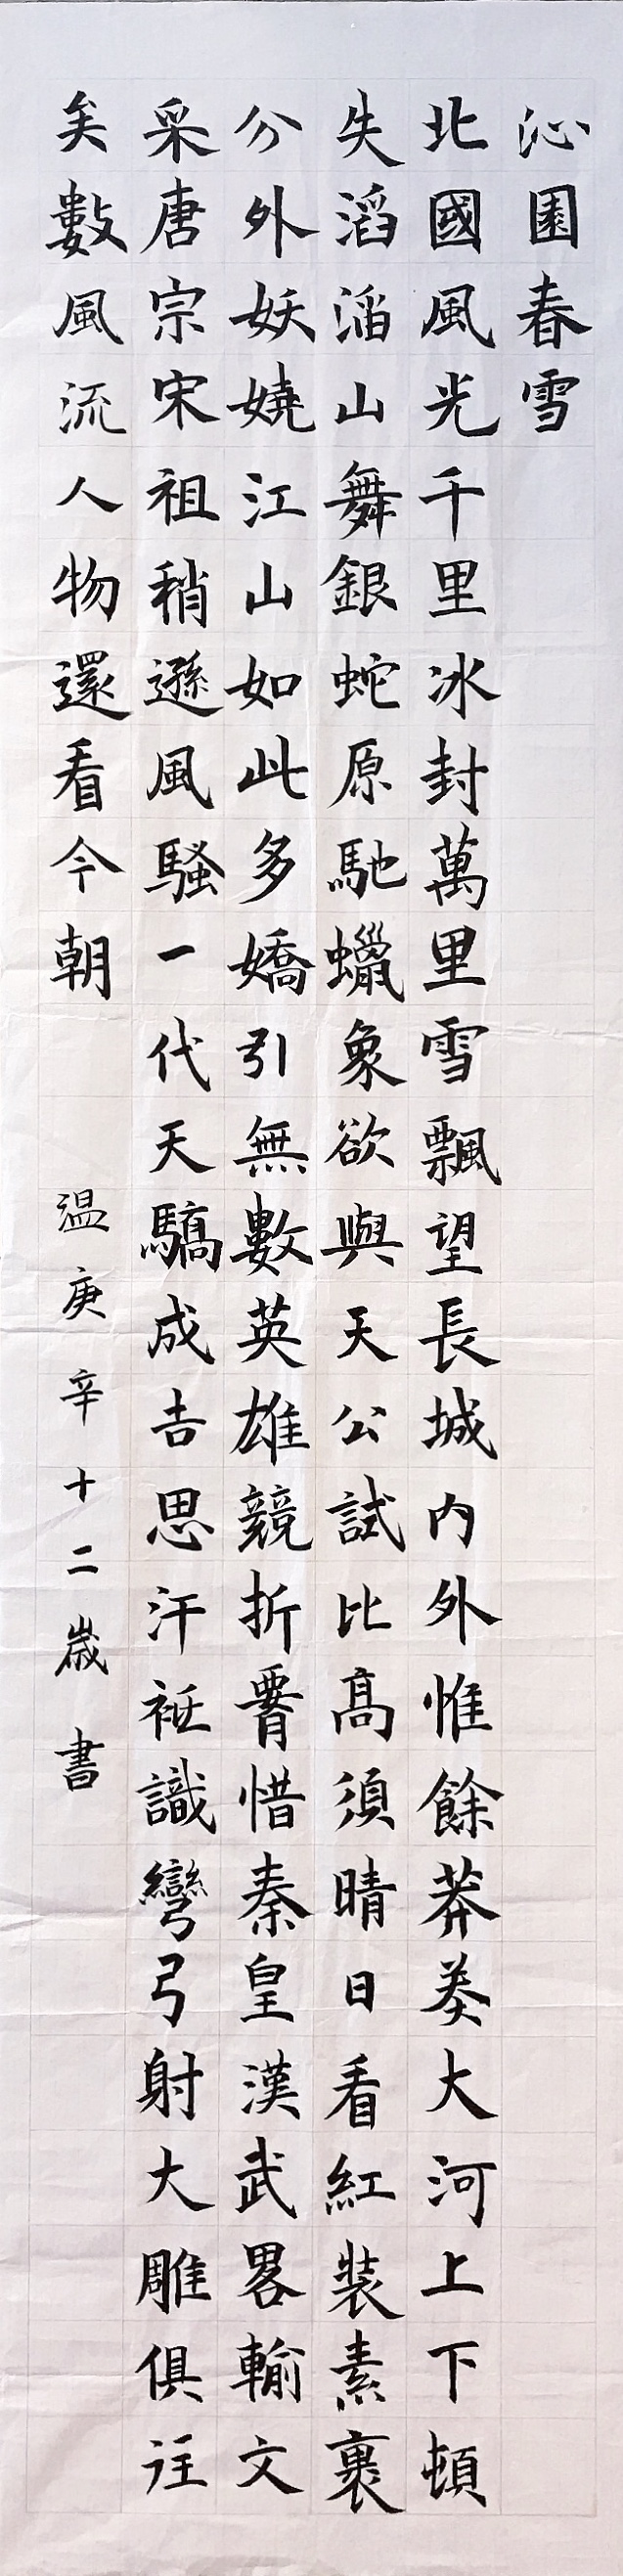 沁園春雪
北國風光千里冰封萬里雪飄望長城内外惟餘莽莽大河上下頓
失滔滔山舞銀蛇原馳蠟象欲與天公試比髙須晴日看紅裝素裹
分外妖嬈江山如此多嬌引無數英雄競折腰惜秦皇漢武畧輸文
采唐宗宋祖稍遜風騷一代天驕成吉思汗袛識彎弓射大雕俱往
矣數風流人物還看今朝 温庚辛十二歲書